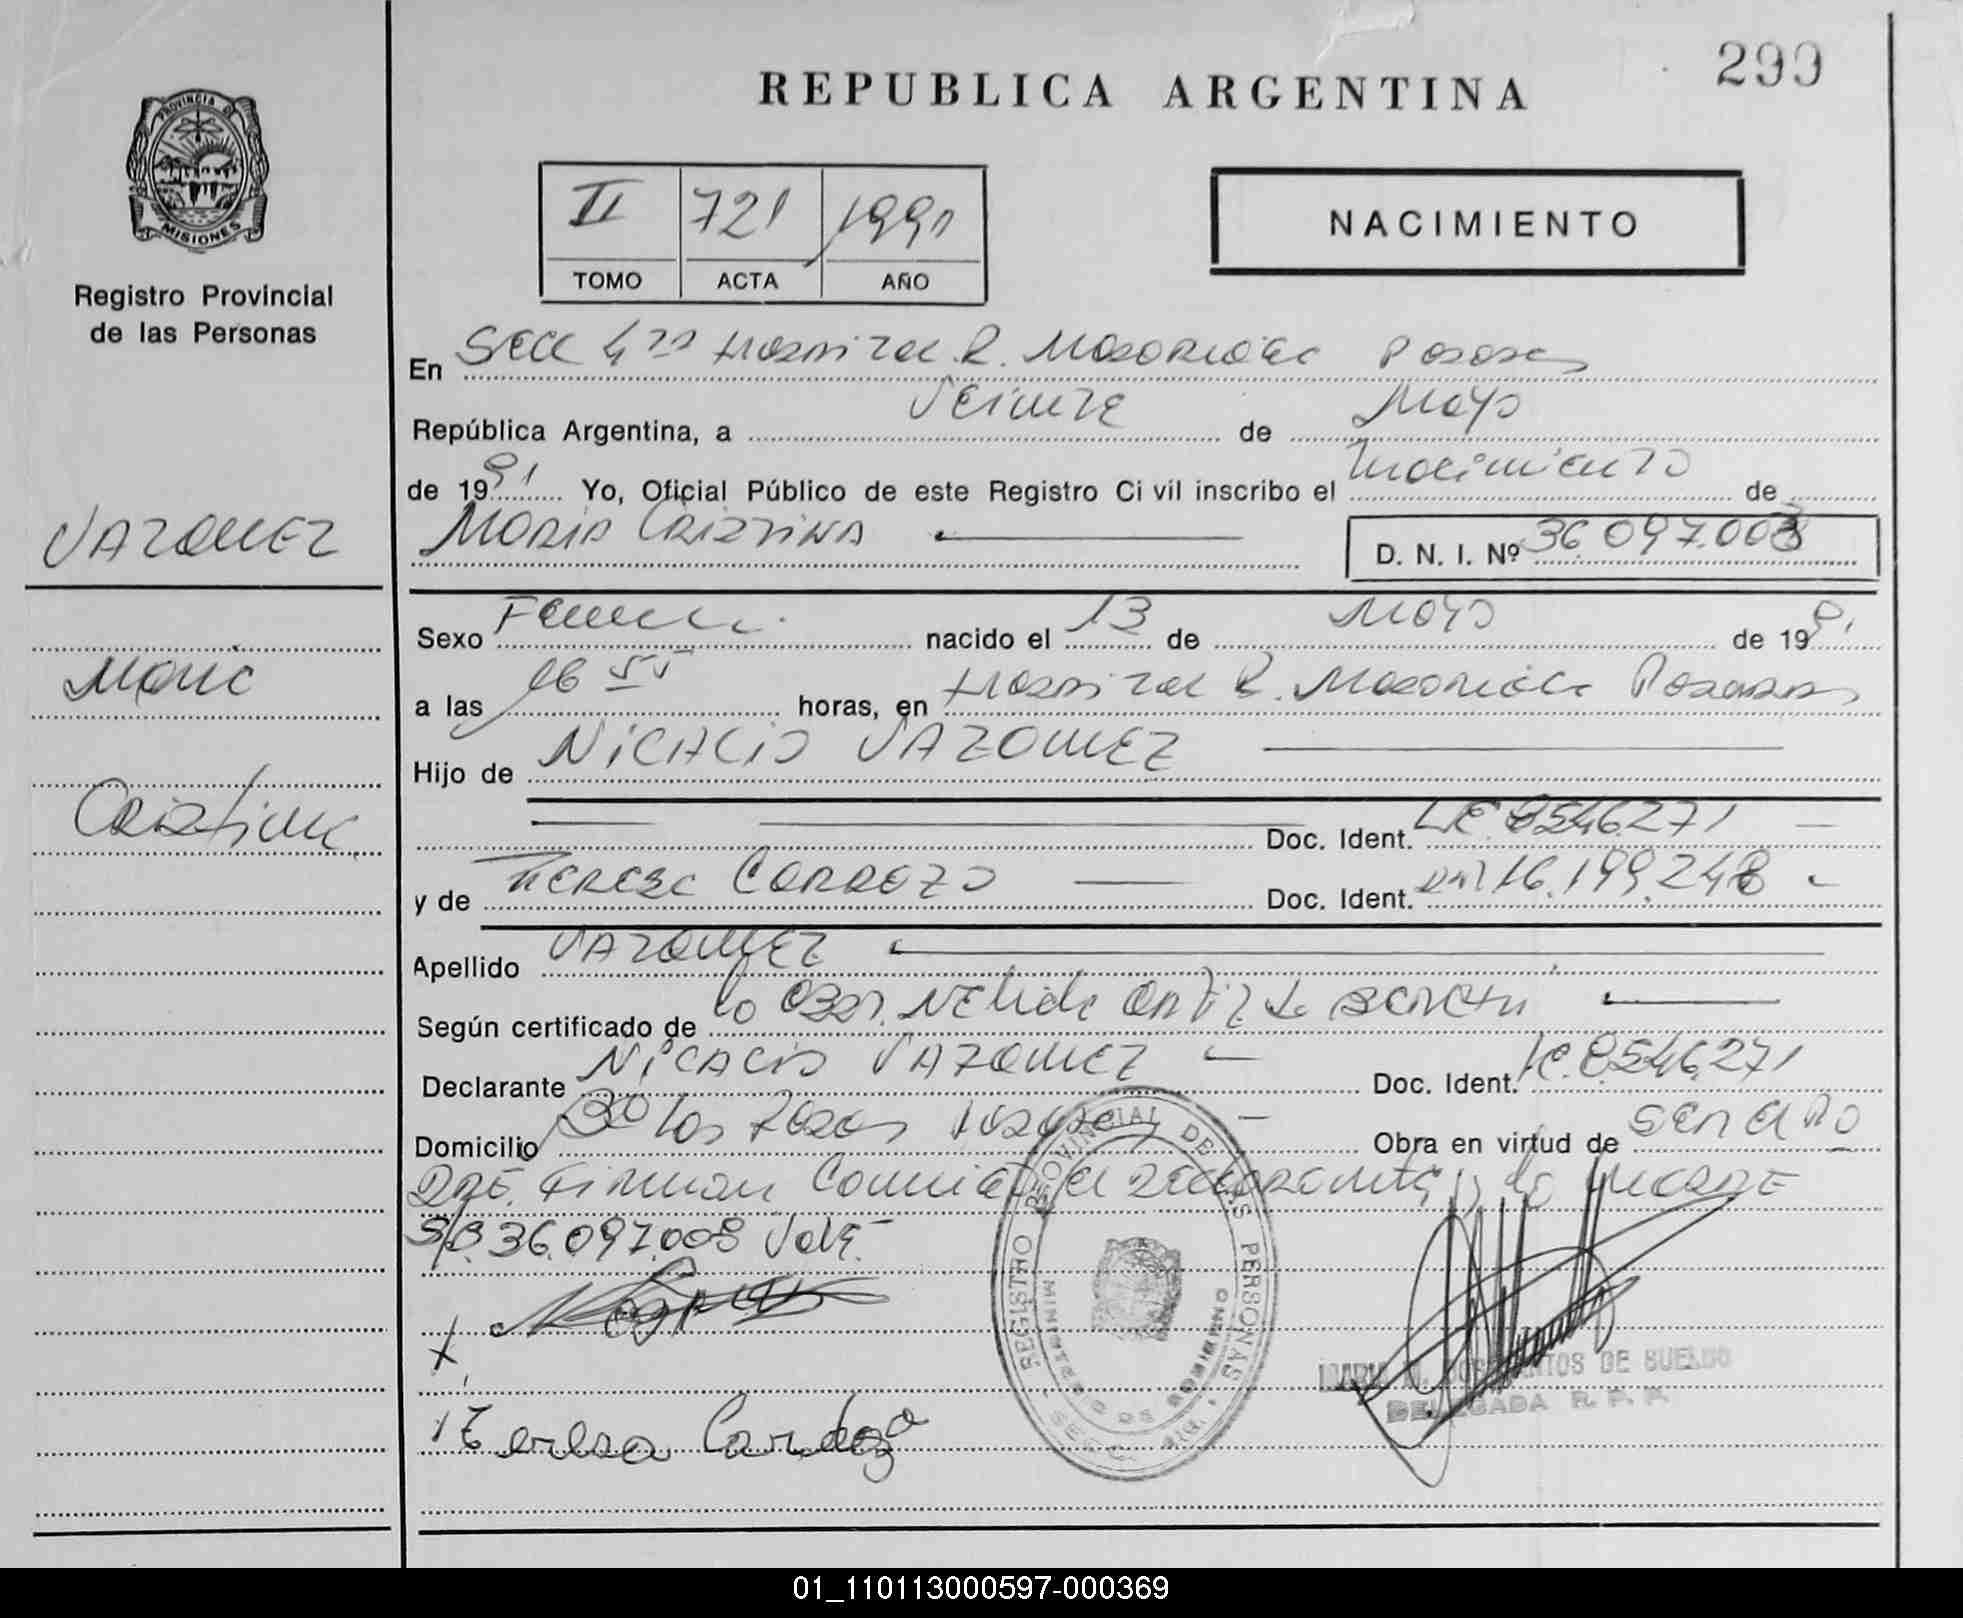 REPUBLICA ARGENTINA
299
PROVINCIA DE
MISIONES
Registro Provincial
de las Personas
II 721 1991
TOMO ACTA AÑO
NACIMIENTO
En Secc 4ta Hospital R. Madariaga Posadas
República Argentina, a Veinte de Mayo
de 1991 Yo, Oficial Público de este Registro Civil inscribo el nacimiento de
VAZQUEZ
Maria Cristina
D. N. I. Nº 36.097.008
Sexo Femen. nacido el 13 de Mayo de 1991
Maria
a las 06 55 horas, en Hospital R. Madariaga Posadas
Hijo de Nicacio VAZQUEZ
Cristina
Doc. Ident. LE 8546271
y de Teresa Cardozo Doc. Ident. DNI 16.199.248
Apellido VAZQUEZ
Según certificado de la Obst. Nelida Ortiz de
Declarante Nicacio VAZQUEZ Doc. Ident. LE 8546271
Domicilio Bº Las Rosas Posadas Obra en virtud de ser el padre
Firman el declarante y la madre
S/B 36.097.008 Vale
Teresa Cardozo
REGISTRO PROVINCIAL DE LAS PERSONAS
MINISTERIO DE GOBIERNO
DOS SANTOS DE SUELDO
DELEGADA R. P. P.
01_110113000597-000369